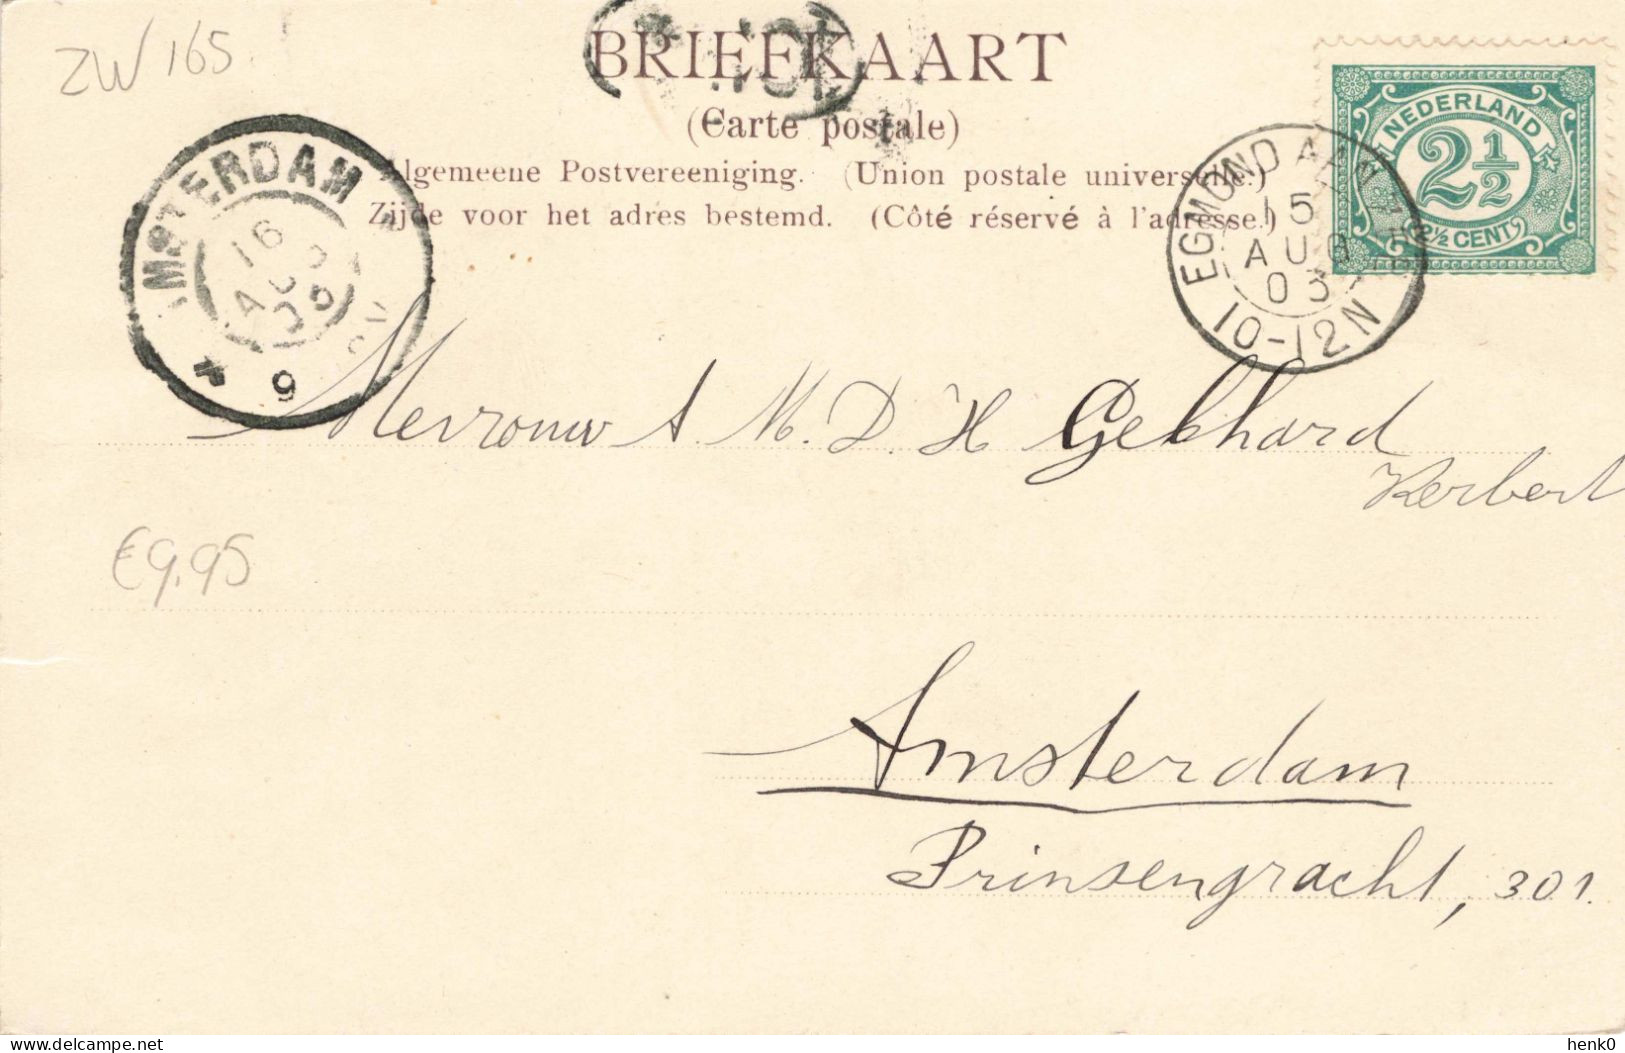 ZW 165
BRIEFKAART
(Carte postale)
Algemeene Postvereeniging. (Union postale universelle.)
Zijde voor het adres bestemd. (Côté réservé à l'adresse.)
AMSTERDAM
16
AUG
03
9
EGMOND AAN ZEE
15
AUG
03
10-12N
NEDERLAND
2½
2½ CENT
Mevrouw A. M. D. H Gebhard
Kerbert
€9,95
Amsterdam
Prinsengracht, 301.
delcampe.net
henk0